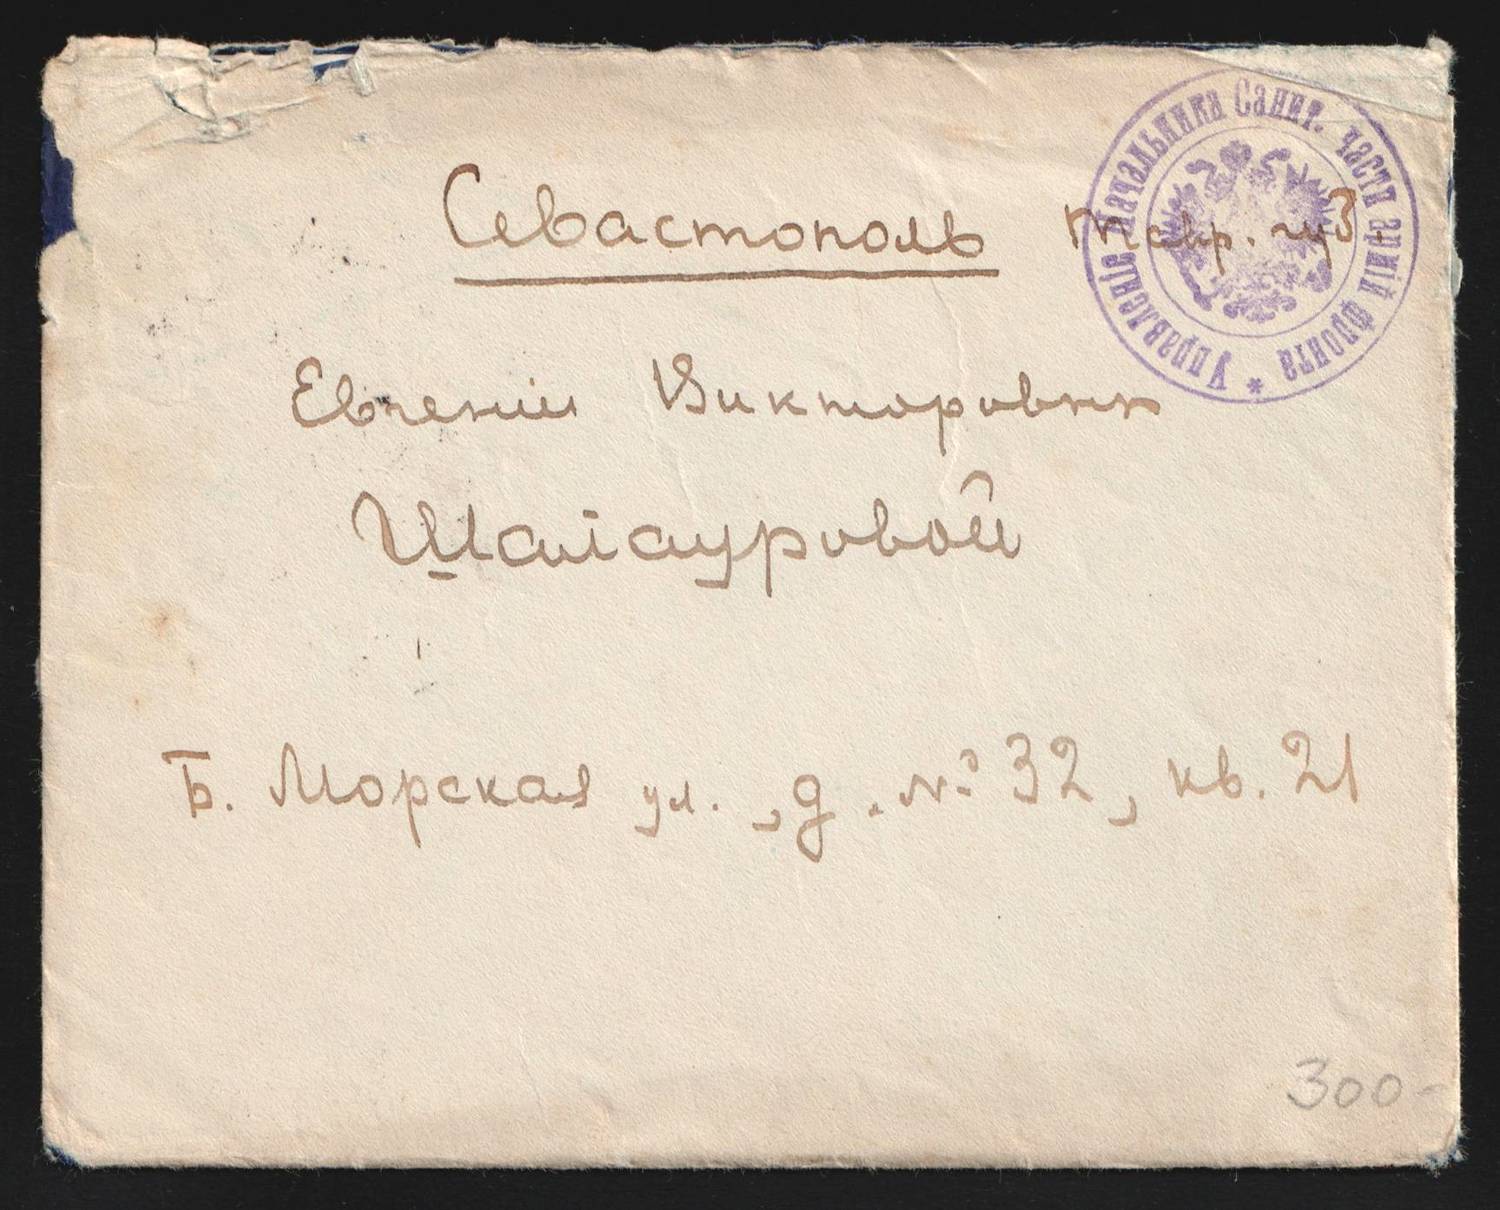 Севастополь Тавр. губ.
Управленіе Начальника Санит. части армій фронта *
Евгеніи Викторовнѣ
Шалауровой
Б. Морская ул., д. № 32, кв. 21
300-